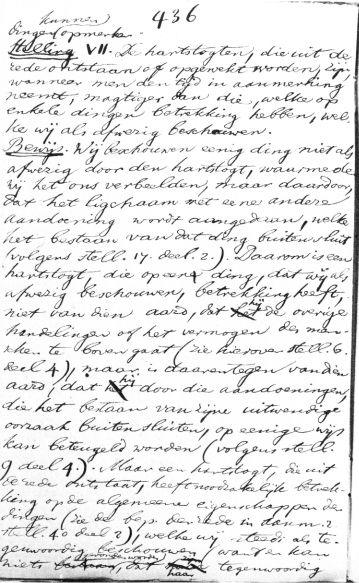 436
kunnen
dingen opmerk
Stelling VII. De hartstogten, die uit de
rede ontstaan of opgewekt worden, zijn,
wanneer men den tijd in aanmerking
neemt, magtiger dan die, welke op
enkele dingen betrekking hebben, wel-
ke wij als afwezig beschouwen.
Bewijs. Wij beschouwen eenig ding niet als
afwezig door den hartstogt, waarmede
wij het ons verbeelden, maar daardoor,
dat het ligchaam met eene andere
aandoening wordt aangedaan, welke
het bestaan van dat ding buitensluit
(volgens stell. 17. deel. 2.). Daarom is een
hartstogt, die op een ding, dat wij als
afwezig beschouwen, betrekking heeft,
niet van dien aard, dat hij de overige
handelingen of het vermogen des men-
schen te boven gaat (zie hierover stell. 6.
deel 4), maar is daarentegen van dien
aard, dat hij door die aandoeningen,
die het bestaan van zijne uitwendige
oorzaak buitensluiten, op eenige wijs
kan beteugeld worden (volgens stell.
9 deel 4.). Maar een hartstogt, die uit
de rede ontstaat, heeft noodzakelijk betrek-
king op de algemeene eigenschappen der
dingen (zie de bep. der rede in aanm. 2
stell. 40 deel 2), welke wij steeds als te-
genwoordig beschouwen (want er kan
niets dat haar tegenwoordig